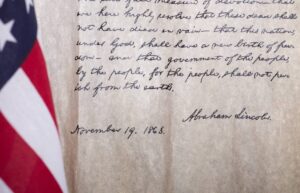 we here highly resolve that these dead shall
not have died in vain— that this nation,
under God, shall have a new birth of free
dom— and that government of the people,
by the people, for the people, shall not per
ish from the earth.
Abraham Lincoln.
November 19, 1863.